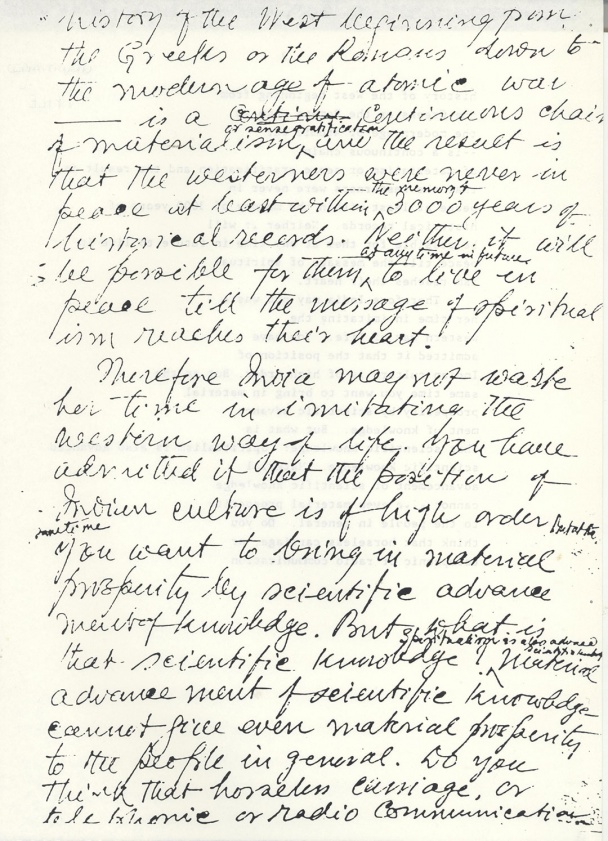 history of the West beginning from
the Greeks or the Romans down to
the modern age of atomic war
—— is a continuous chain
or sensegratification
of materialism, and the result is
that the westerners were never in
the memory of
peace at least within 3000 years of
historical records. Neither it will
at any time in future
be possible for them to live in
peace till the message of spiritual
ism reaches their heart.
Therefore India may not waste
her time in imitating the
western way of life. You have
admitted it that the position of
Indian culture is of high order but at the
same time
you want to bring in material
prosperity by scientific advance
ment of knowledge. But what is
spiritualism is also advanced
that scientific knowledge? Material
advancement of scientific knowledge
cannot give even material prosperity
to the people in general. Do you
think that horseless carriage, or
telephonic or radio communication